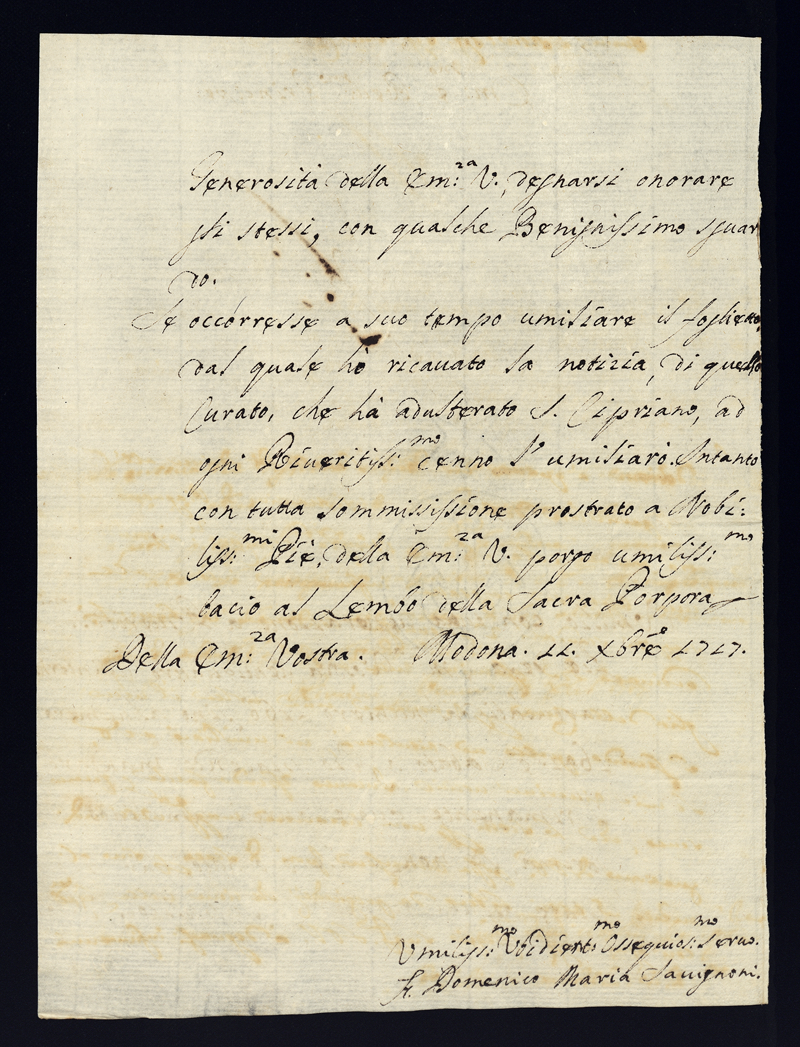 Generosità della Em:za V. degnarsi onorare
gli stessi, con qualche Benignissimo sguar
do.
Se occorresse a suo tempo umiliare il foglietto,
dal quale hò ricavato la notizia, di quello
Curato, che hà adulterato S. Cipriano, ad
ogni Riveritiss:mo cenno l'umiliarò. Intanto
con tutta sommissione prostrato a Nobi:
liss:mi Piè, della Em:za V. porgo umiliss:mo
bacio al Lembo della Sacra Porpora
Della Em:za Vostra. Modona. 11. Xbrē 1717.
Umiliss:mo Ubidient:mo Ossequios:mo Servo.
F. Domenico Maria Savignoni.